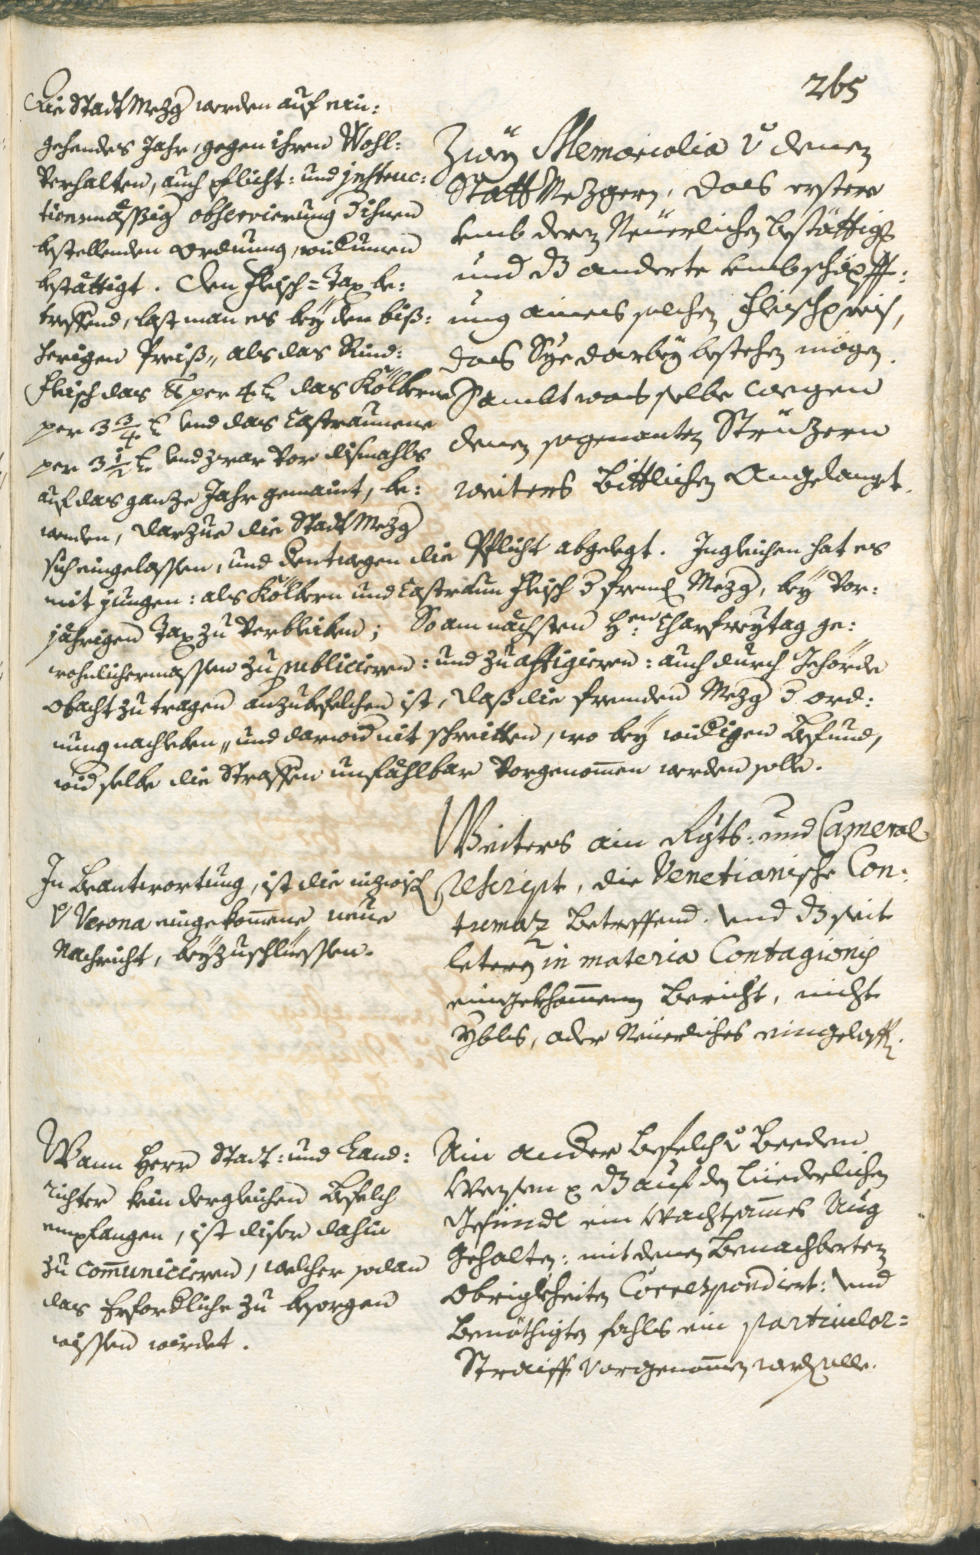 265
Zwey Memorialia v denen
Statt Mezgern, das erstere
umb deren Neüerlichen bestättig
und dz anderte umb schöpff:
ung aines solchen fleischpreis,
das Sye darbey bestehen mögen.
Sambt was selbe wegen
denen sogenanten Strüzern
weiters Bittlichen Angelangt.
Die Stadt Mezg werden auf ein:
gehendes Jahr, gegen ihren Wohl:
verhalten, auch Pflicht: und instruc:
tionsmässig observierung d ihnen
bestellenden ordnung, widumen
bestättigt. Den Fleisch=Tax be:
treffend, last man es bey den biß:
herigen Preiß, als das Rind:
fleisch das lb per 4 kr das Kölberne
per 3 3/4 kr und das Castraunene
per 3 1/2 kr und zwar vor dismahls
auf das ganze Jahr gemaint, be:
wenden, darzue die Stadt Mezg
sich eingelassen, und dentwegen die Pflicht abgelegt. Ingleichen hat es
mit jungen: als Kölbern und Castraun Fleisch d fremd Mezg, bey vor:
jährigen Tax zu verbleiben; So am nächsten H:en Charfreytag ge:
wohnlichermassen zu publicieren: und zu affigieren: auch durch Gehörde
obacht zu tragen anzubefelchen ist, daß die fremden Mezg d ord:
nung nachleben, und darwid nit schreitten, wo bey widrigen Befund,
wid selbe die Straffen unfählbar vorgenomen werden solle.
Weiters ain Rgts: und Cameral
rescript, die Venetianische Con:
tumaz Betreffend. und dz seit
letern in materia Contagionis
eingekhommenen Bericht, nichts
Ybles, oder Neüerliches eingeloffen.
In Beantwortung, ist die inzwisch
v Verona eingekomene neüe
Nachricht, beyzuschliessen.
Ain ander Befelch v Beeden
Wesen p dz auf das Liederliche
Gesindl ein wachtsames Aug
Gehalten: mit denen Benachberten
Obrigkheiten Correspondiert: und
Benöthigten fahls ein particular=
Straiff vorgenomen werd solle.
Wann Herr Stadt: und Land:
richter kein dergleichen Befelch
empfangen, ist diser dahin
zu comunicieren, welcher sodan
das Erforderliche zu besorgen
wissen würdet.